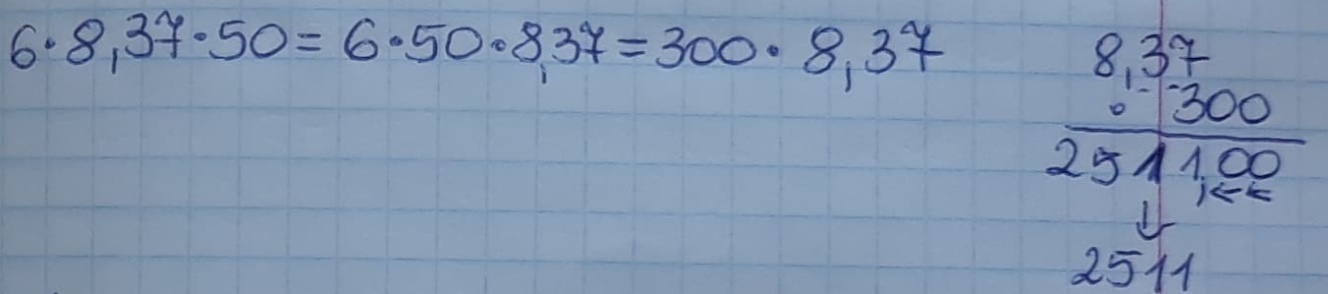 6·8,37·50 = 6·50·8,37 = 300· 8,37
8,37
· 300
2511,00
2511